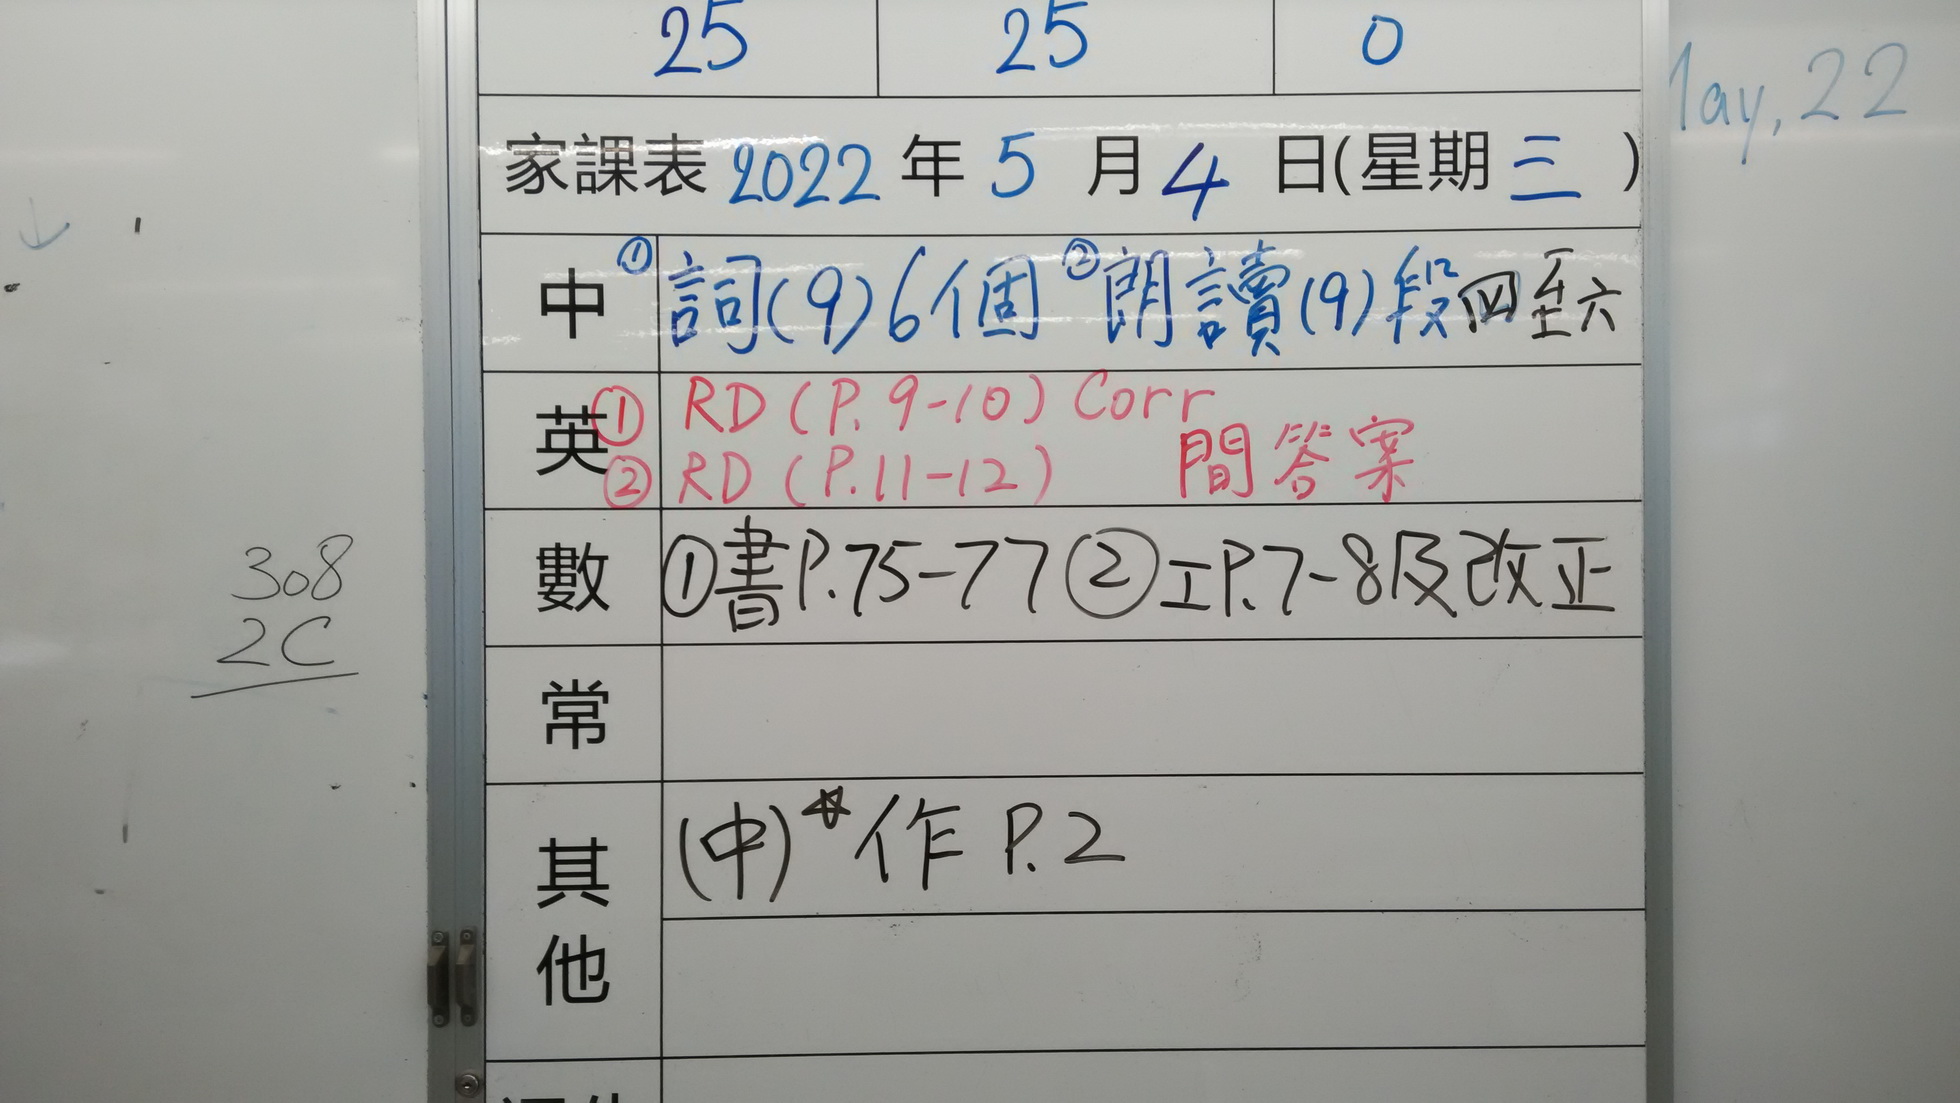 25 25 0
家課表 2022 年 5 月 4 日(星期 三 )
中 ① 詞(9)6個 ② 朗讀(9)段四至六
英 ① RD (P. 9-10) Corr
② RD (P.11-12) 間答案
數 ①書P.75-77 ②工P.7-8及改正
常
其他 (中)☆作 P.2
308
2C
May, 22